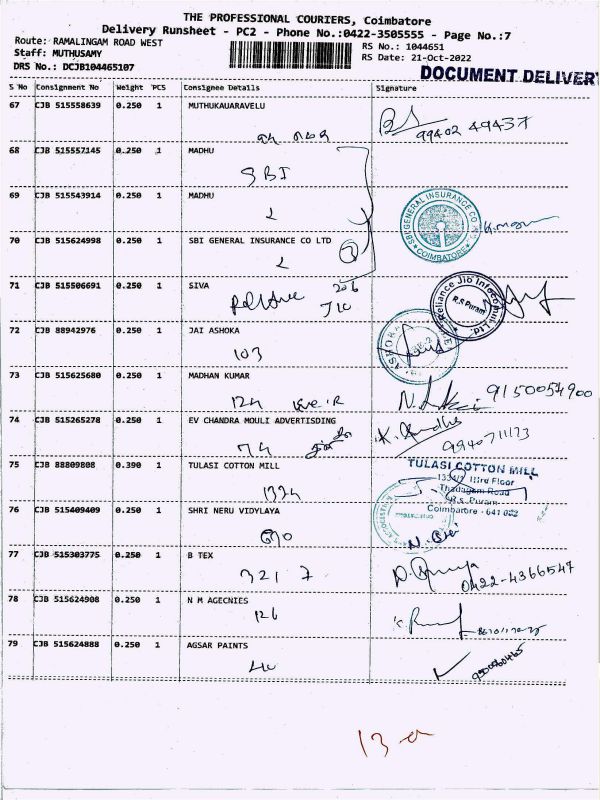 THE PROFESSIONAL COURIERS, Coimbatore
Delivery Runsheet - PC2 - Phone No.:0422-3505555 - Page No.:7
Route: RAMALINGAM ROAD WEST
RS No.: 1044651
Staff: MUTHUSAMY
RS Date: 21-Oct-2022
DRS No.: DCJB104465107
DOCUMENT DELIVERY
S No Consignment No Weight PCS Consignee Details Signature
67 CJB 515558639 0.250 1 MUTHUKAUARAVELU
99402 49437
68 CJB 515557145 0.250 1 MADHU
SBI
69 CJB 515543914 0.250 1 MADHU
SBI GENERAL INSURANCE CO
COIMBATORE
70 CJB 515624998 0.250 1 SBI GENERAL INSURANCE CO LTD
71 CJB 515506691 0.250 1 SIVA
Reliance Jio Infocomm Ltd
R.S Puram
Reliance Jio
72 CJB 88942976 0.250 1 JAI ASHOKA
103
73 CJB 515625680 0.250 1 MADHAN KUMAR
124
9150054900
74 CJB 515265278 0.250 1 EV CHANDRA MOULI ADVERTISDING
74
9940711123
75 CJB 88809808 0.390 1 TULASI COTTON MILL
1334
TULASI COTTON MILL
1334/2 IIIrd Floor
Thadagam Road
R.S. Puram
Coimbatore - 641 002
76 CJB 515409409 0.250 1 SHRI NERU VIDYLAYA
77 CJB 515303775 0.250 1 B TEX
321 7
0422-4366547
78 CJB 515624908 0.250 1 N M AGECNIES
126
79 CJB 515624888 0.250 1 AGSAR PAINTS
40
13